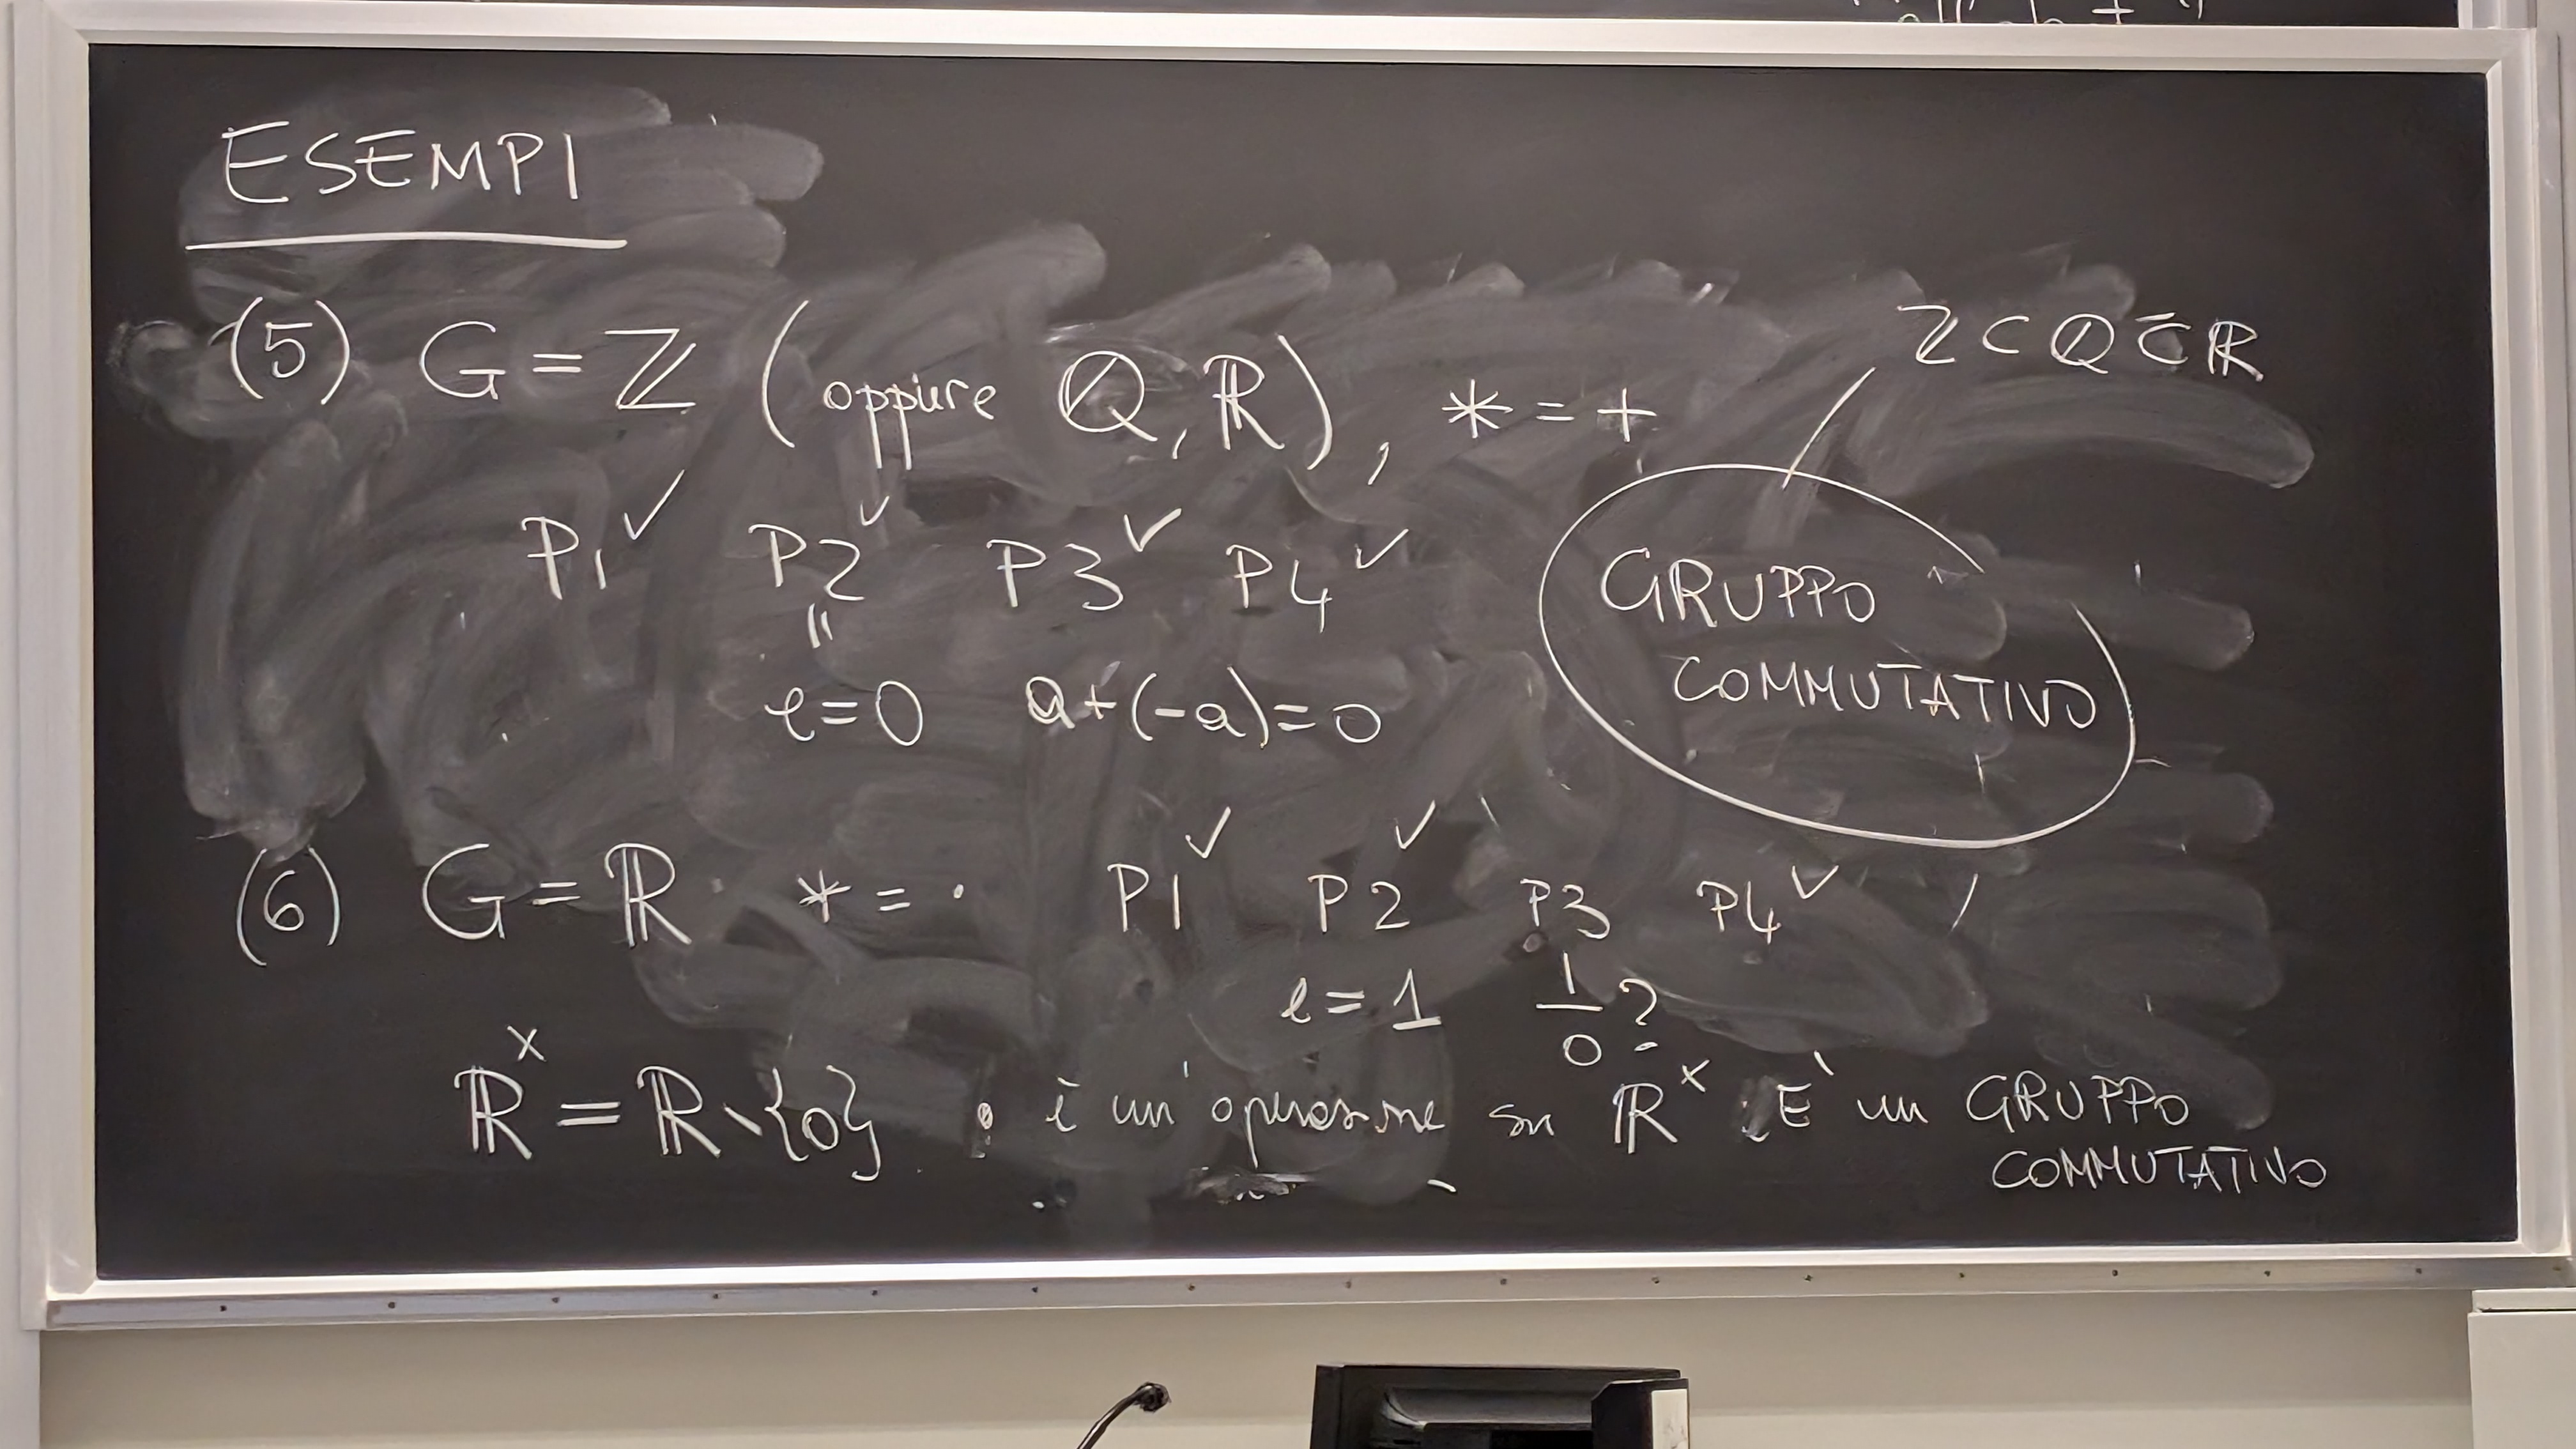 ESEMPI
ℤ ⊂ ℚ ⊂ ℝ
(5) G = ℤ (oppure ℚ, ℝ), * = +
P1 ✓ P2 ✓ P3 ✓ P4 ✓
GRUPPO
COMMUTATIVO
e=0 a+(-a)=0
(6) G = ℝ * = · P1 ✓ P2 ✓ P3 P4 ✓
e = 1 1/0 ?
ℝ^× = ℝ \ {0} · è un'operazione su ℝ^× È un GRUPPO
COMMUTATIVO